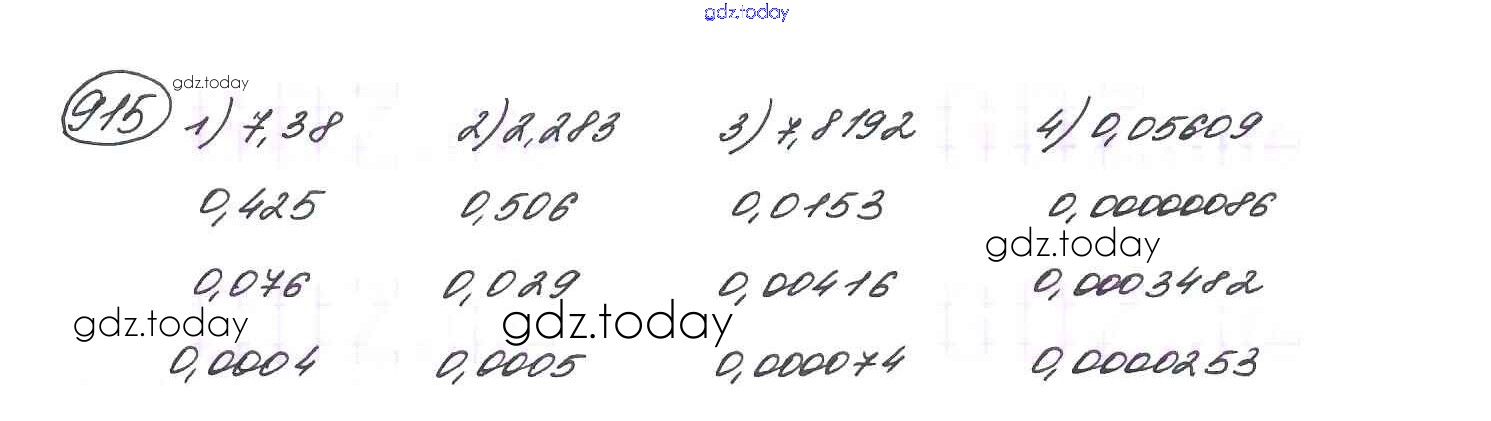 gdz.today
gdz.today
915 1) 7,38 2) 2,283 3) 7,8192 4) 0,05609
0,425 0,506 0,0153 0,00000086
gdz.today
0,076 0,029 0,00416 0,0003482
gdz.today gdz.today
0,0004 0,0005 0,000074 0,0000253